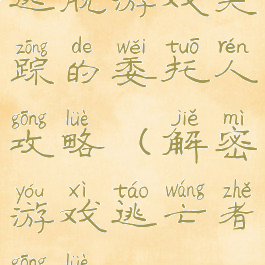 逃脱游戏失
zōng de wěi tuō rén
踪的委托人
gōng lüè jiě mì
攻略（解密
yóu xì táo wáng zhě
游戏逃亡者
gōng lüè